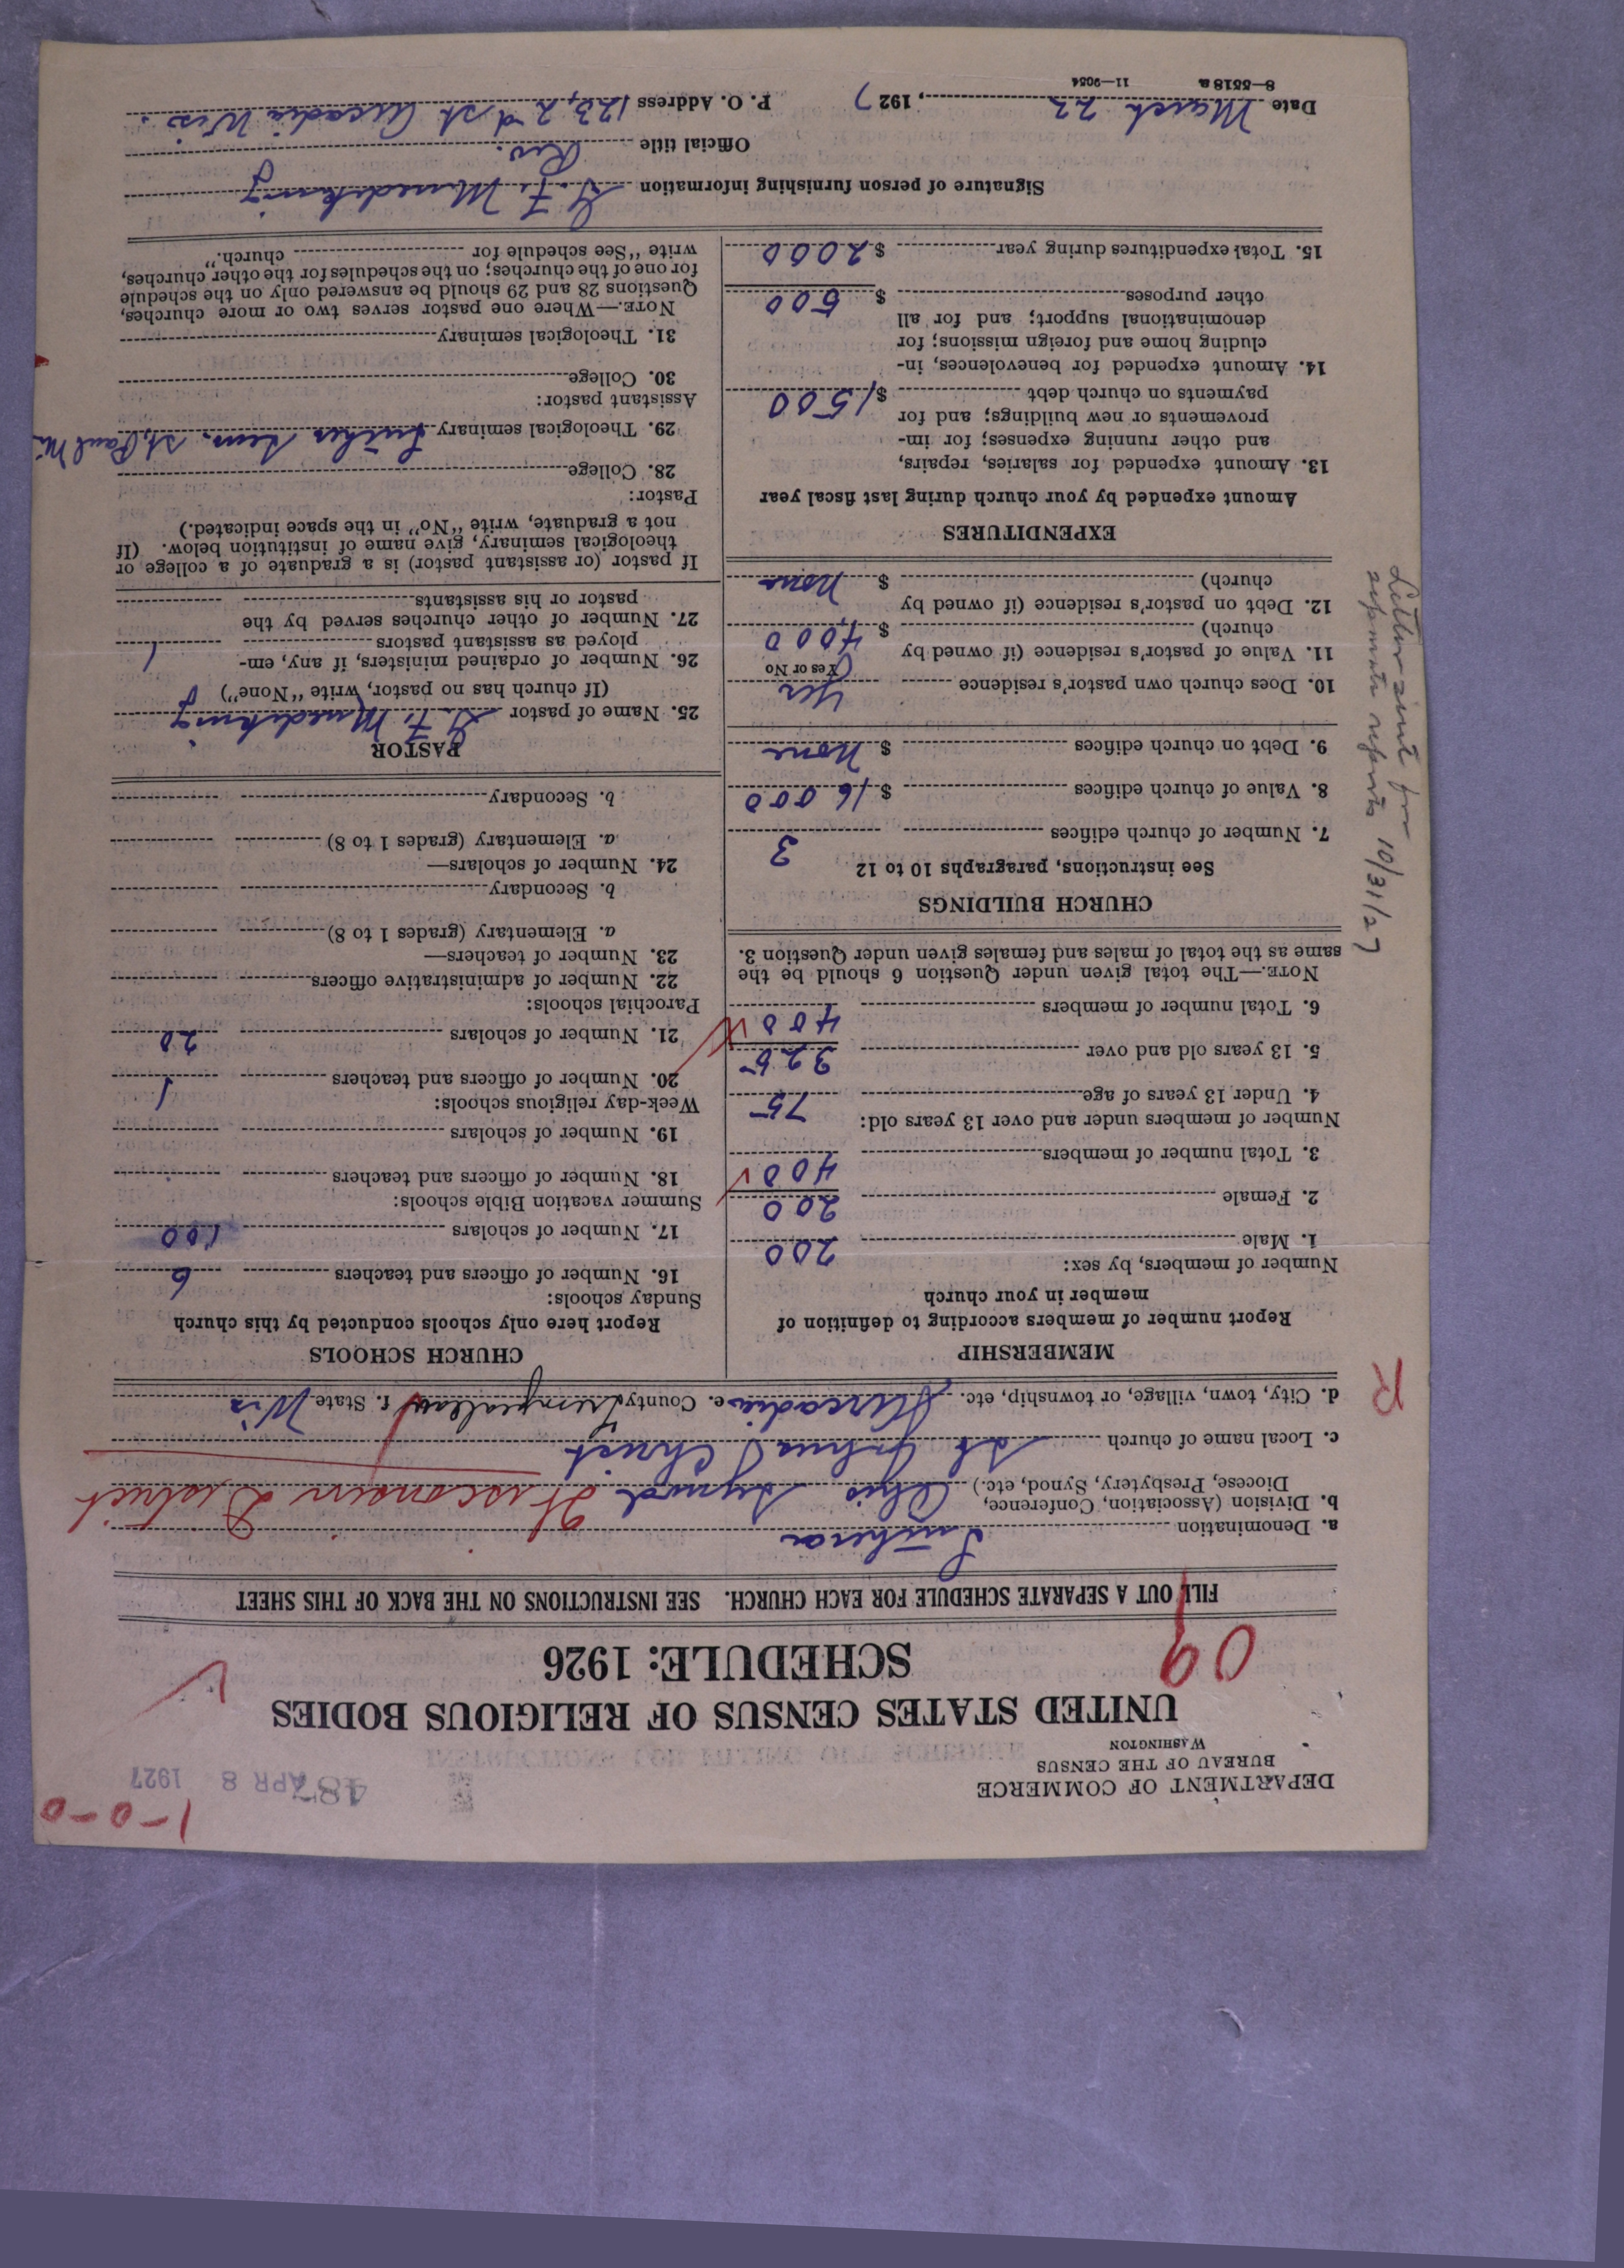 1-0-0
487 APR 8 1927
DEPARTMENT OF COMMERCE
BUREAU OF THE CENSUS
WASHINGTON
UNITED STATES CENSUS OF RELIGIOUS BODIES
SCHEDULE: 1926
09
FILL OUT A SEPARATE SCHEDULE FOR EACH CHURCH. SEE INSTRUCTIONS ON THE BACK OF THIS SHEET
a. Denomination
b. Division (Association, Conference, Diocese, Presbytery, Synod, etc.) Ohio Synod Wisconsin District
c. Local name of church Christ
d. City, town, village, or township, etc. Arcadia e. County Trempealeau f. State Wis
R
MEMBERSHIP
Report number of members according to definition of
member in your church
Number of members, by sex:
1. Male 200
2. Female 200
3. Total number of members 400
Number of members under and over 13 years old:
4. Under 13 years of age 75
5. 13 years old and over 325
6. Total number of members 400
NOTE.—The total given under Question 6 should be the
same as the total of males and females given under Question 3.
CHURCH BUILDINGS
See instructions, paragraphs 10 to 12
7. Number of church edifices 3
8. Value of church edifices $ 16000
9. Debt on church edifices $ none
10. Does church own pastor's residence Yes
(Yes or No)
11. Value of pastor's residence (if owned by
church) $ 4000
12. Debt on pastor's residence (if owned by
church) $ none
EXPENDITURES
Amount expended by your church during last fiscal year
13. Amount expended for salaries, repairs,
and other running expenses; for im-
provements or new buildings; and for
payments on church debt $ 1500
14. Amount expended for benevolences, in-
cluding home and foreign missions; for
denominational support; and for all
other purposes $ 500
15. Total expenditures during year $ 2000
CHURCH SCHOOLS
Report here only schools conducted by this church
Sunday schools:
16. Number of officers and teachers 6
17. Number of scholars 100
Summer vacation Bible schools:
18. Number of officers and teachers
19. Number of scholars
Week-day religious schools:
20. Number of officers and teachers 1
21. Number of scholars 20
Parochial schools:
22. Number of administrative officers
23. Number of teachers—
a. Elementary (grades 1 to 8)
b. Secondary
24. Number of scholars—
a. Elementary (grades 1 to 8)
b. Secondary
PASTOR
25. Name of pastor
(If church has no pastor, write "None")
26. Number of ordained ministers, if any, em-
ployed as assistant pastors 1
27. Number of other churches served by the
pastor or his assistants
If pastor (or assistant pastor) is a graduate of a college or
theological seminary, give name of institution below. (If
not a graduate, write "No" in the space indicated.)
Pastor:
28. College
29. Theological seminary Luther Sem. St. Paul
Assistant pastor:
30. College
31. Theological seminary
NOTE.—Where one pastor serves two or more churches,
Questions 28 and 29 should be answered only on the schedule
for one of the churches; on the schedules for the other churches,
write "See schedule for church."
Signature of person furnishing information
Official title Rev.
Date March 22, 1927 P. O. Address 123, 2nd St Arcadia Wis.
8—5518 a 11—9054
Letter sent for
separate reports 10/31/27